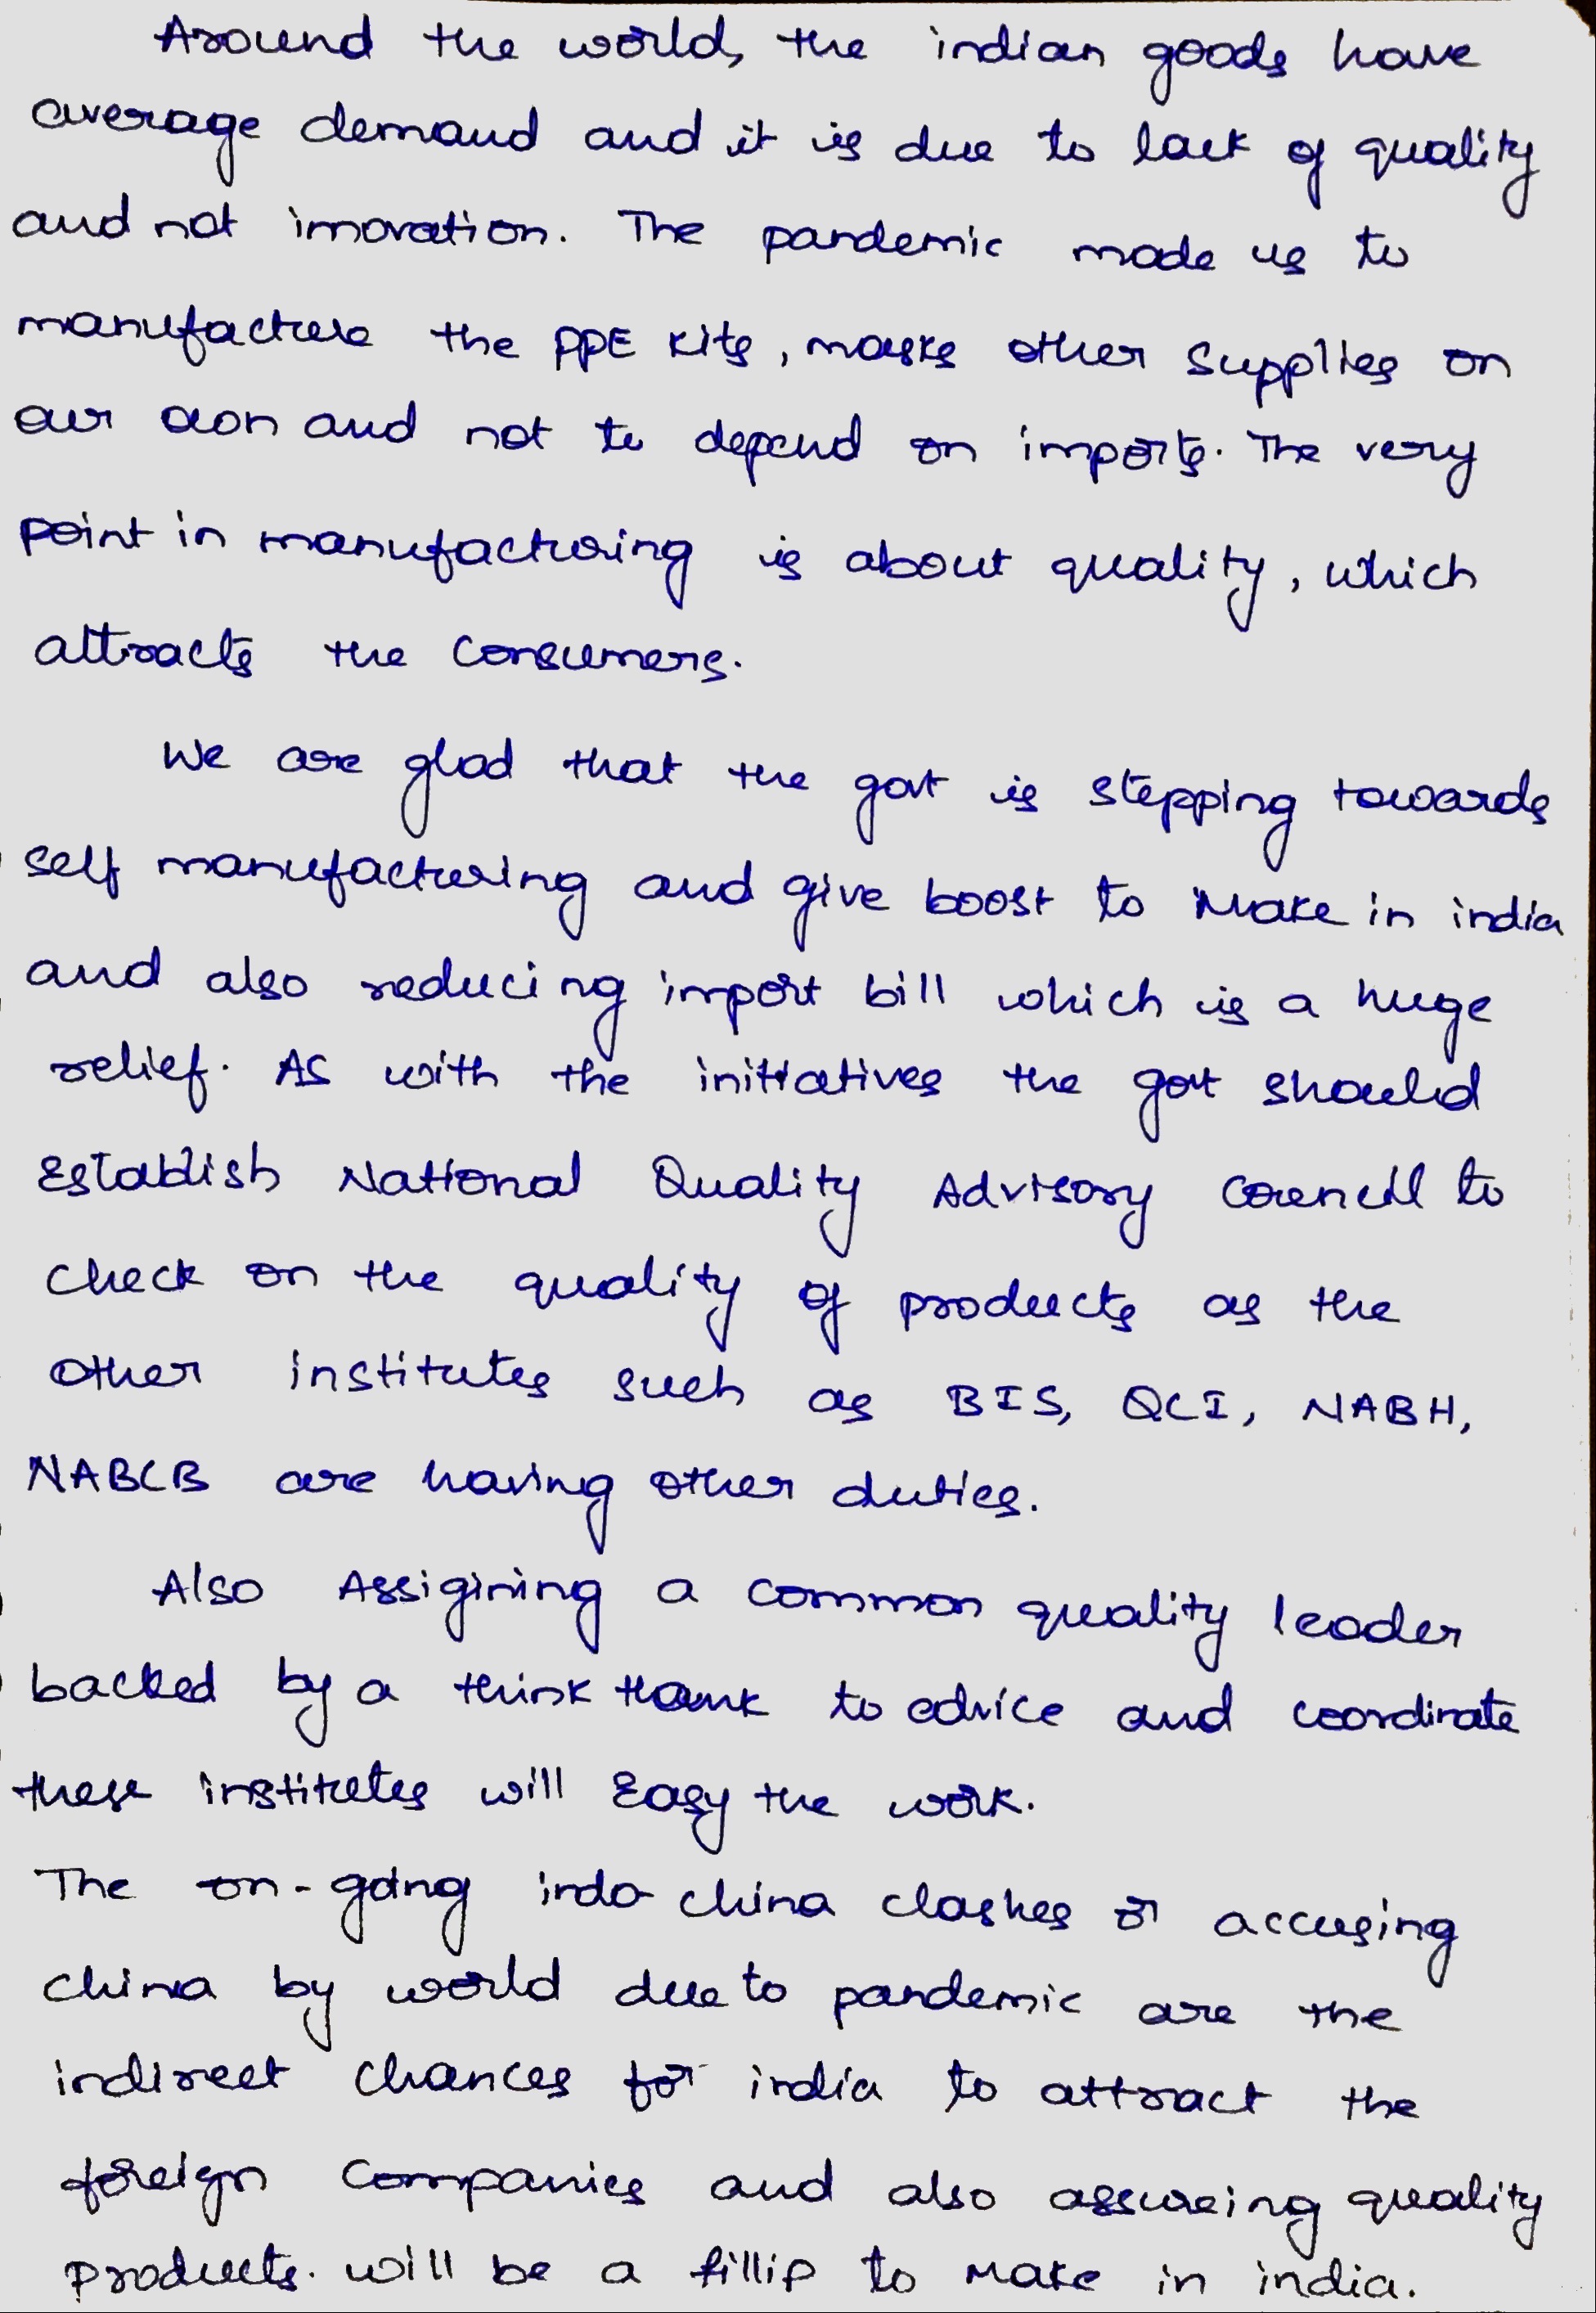 Around the world, the indian goods have
average demand and it is due to lack of quality
and not imovation. The pandemic made us to
manufacture the PPE kits, masks other supplies on
our own and not to depend on imports. The very
point in manufacturing is about quality, which
attracts the consumers.
We are glad that the govt is stepping towards
self manufacturing and give boost to Make in india
and also reducing import bill which is a huge
relief. As with the initiatives the govt should
Establish National Quality Advisory Council to
check on the quality of products as the
other institutes such as BIS, QCI, NABH,
NABCB are having other duties.
Also Assigining a common quality leader
backed by a think thank to advice and coordinate
these institutes will Easy the work.
The on-going indo china clashes or accusing
china by world due to pandemic are the
indirect chances for india to attract the
foreign companies and also assureing quality
products. will be a fillip to Make in india.